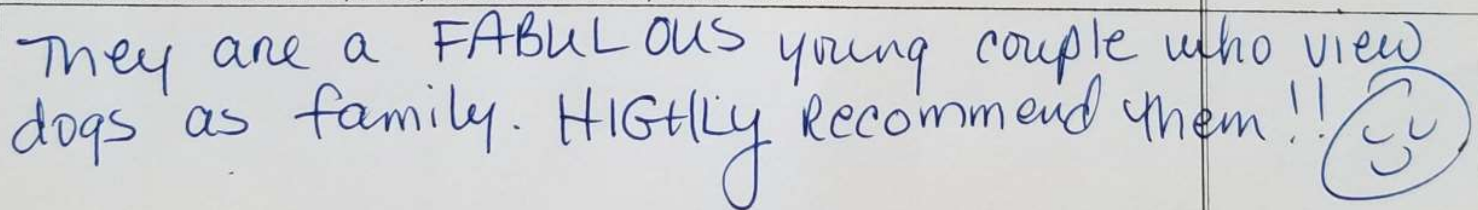 They are a FABULOUS young couple who view
dogs as family. HIGHLY Recommend them!!